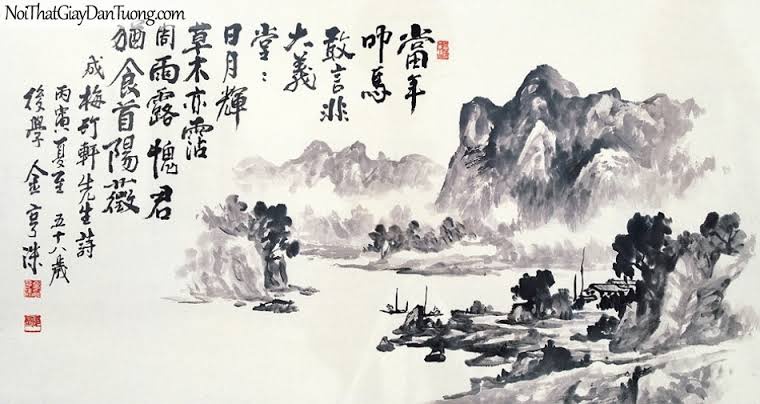 NoiThatGiayDanTuong.com
當年
叩馬
敢言非
大義
堂〻
日月輝
草木亦霑
周雨露愧君
猶食首陽薇
成梅竹軒先生詩
丙寅夏至 五十八歲
後學 金亨洙